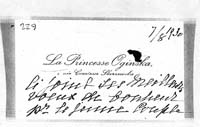 229
La Princesse Oginska,
ci joint ses meilleurs
voeux de bonheur
pr le jeune couple